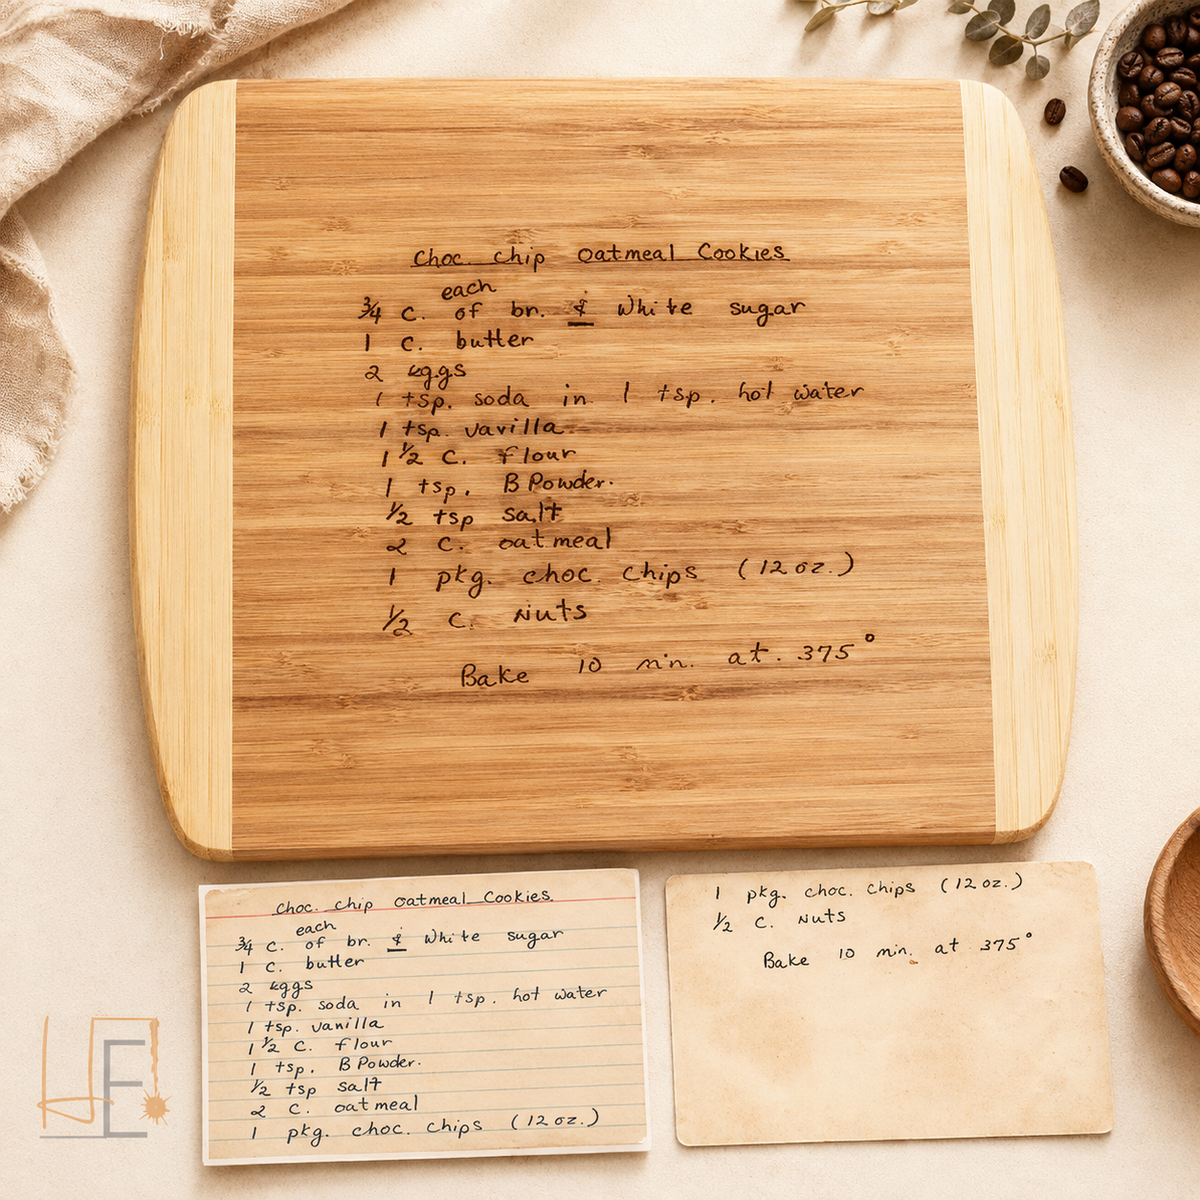 Choc. chip Oatmeal Cookies
each
3/4 c. of br. & White sugar
1 c. butter
2 eggs
1 tsp. soda in 1 tsp. hot water
1 tsp. vavilla
1 1/2 c. flour
1 tsp. B Powder.
1/2 tsp salt
2 c. oatmeal
1 pkg. choc. chips (12 oz.)
1/2 c. Nuts
Bake 10 min. at. 375°
Choc. chip Oatmeal Cookies
each
3/4 c. of br. & White sugar
1 c. butter
2 eggs
1 tsp. soda in 1 tsp. hot water
1 tsp. vanilla
1 1/2 c. flour
1 tsp. B Powder.
1/2 tsp salt
2 c. oatmeal
1 pkg. choc. chips (12 oz.)
1 pkg. choc. chips (12 oz.)
1/2 c. Nuts
Bake 10 min. at 375°